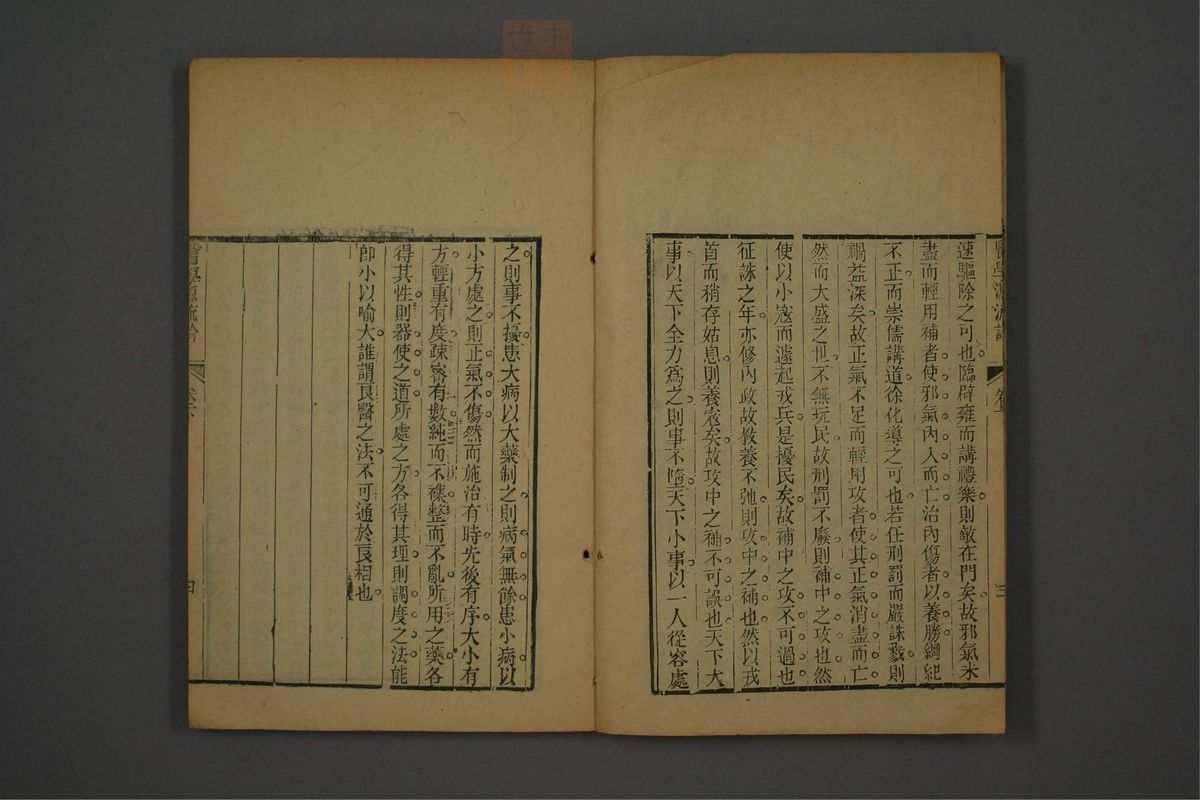 醫學源流論
卷
三
速驅除之可也臨辟雍而講禮樂則敵在門矣故邪氣未
盡而輕用補者使邪氣內入而亡治內傷者以養勝綱紀
不正而崇儒講道徐化導之可也若任刑罰而嚴誅戮則
禍益深矣故正氣不足而輕用攻者使其正氣消盡而亡
然而大盛之世不無玩民故刑罰不廢則補中之攻也然
使以小寇而遽起戎兵是擾民矣故補中之攻不可過也
征誅之年亦修內政故敎養不弛則攻中之補也然以戎
首而稍存姑息則養寇矣故攻中之補不可誤也天下大
事以天下全力爲之則事不墮天下小事以一人從容處
之則事不擾患大病以大藥制之則病氣無餘患小病以
小方處之則正氣不傷然而施治有時先後有序大小有
方輕重有度疎密有數純而不襍整而不亂所用之藥各
得其性則器使之道所處之方各得其理則調度之法能
卽小以喻大誰謂良醫之法不可通於良相也
醫學源流論
卷六
四